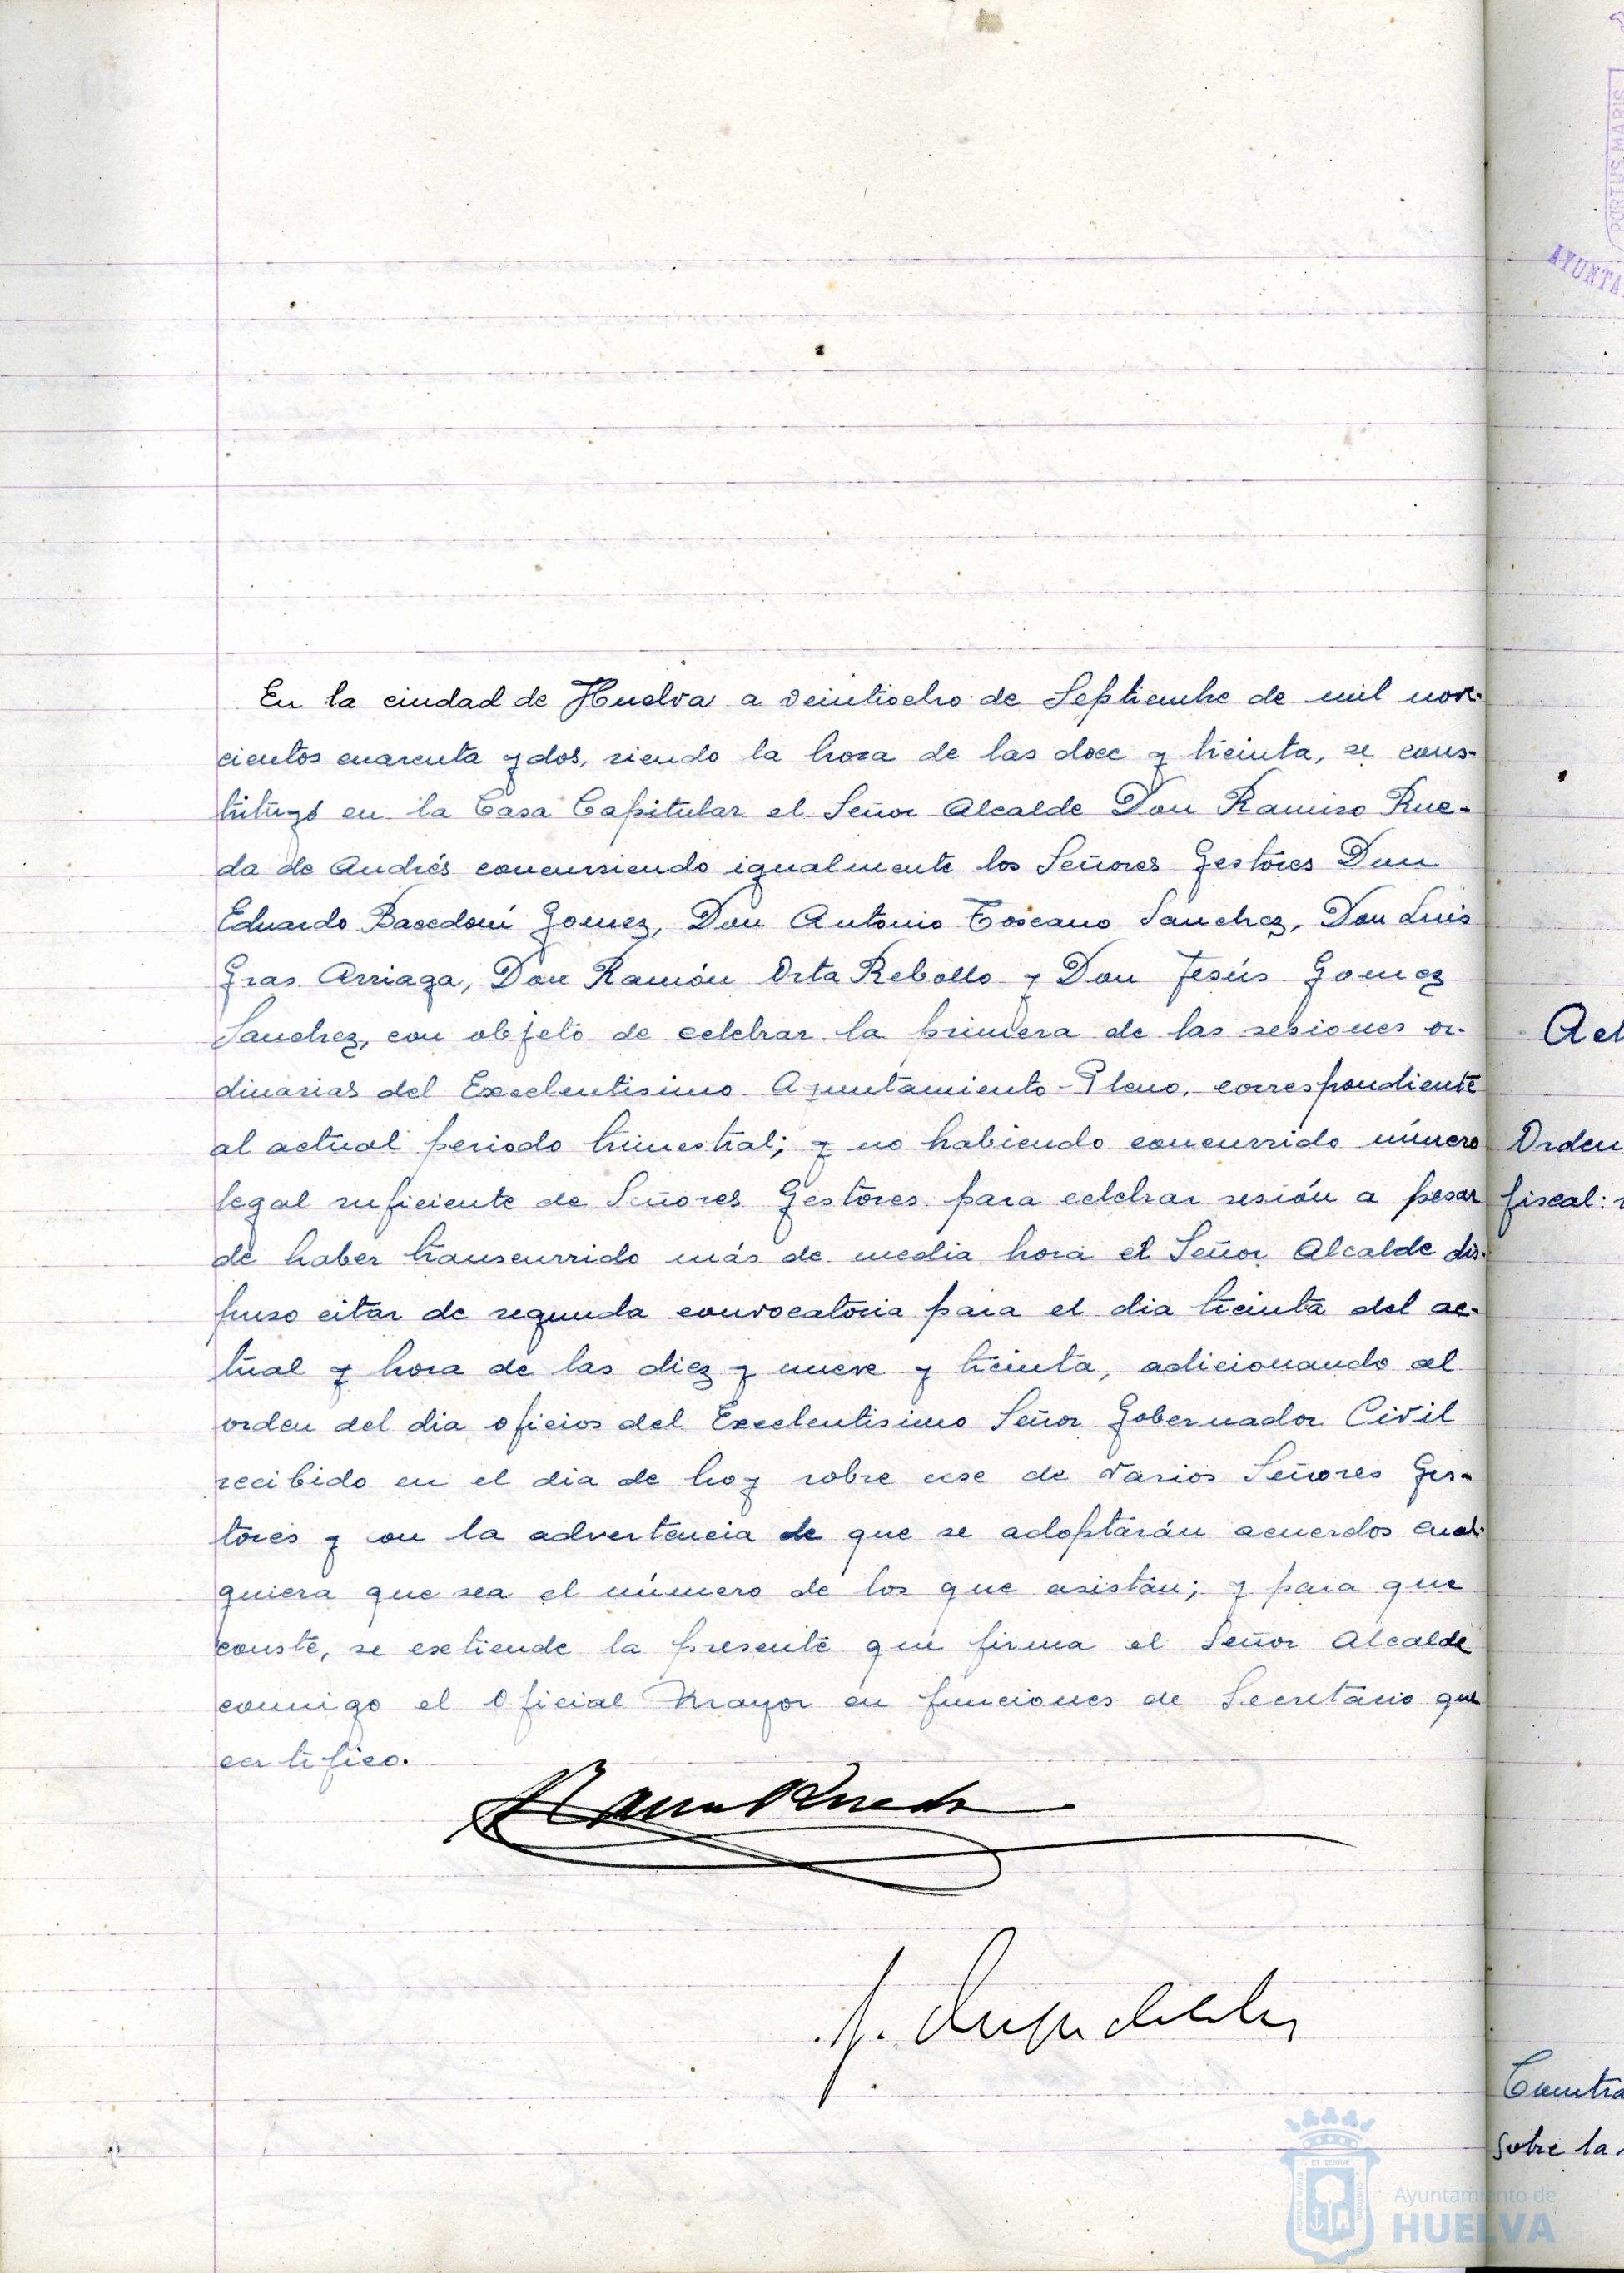 En la ciudad de Huelva a veintiocho de Septiembre de mil nove-
cientos cuarenta y dos, siendo la hora de las doce y treinta, se cons-
tituyó en la Casa Capitular el Señor Alcalde Don Ramiro Rue-
da de Andrés concurriendo igualmente los Señores Gestores Don
Eduardo Bacedoní Gomez, Don Antonio Toscano Sanchez, Don Luis
Gras Arriaga, Don Ramón Orta Rebollo y Don Jesús Gomez
Sanchez, con objeto de celebrar la primera de las sesiones or-
dinarias del Excelentisimo Ayuntamiento-Pleno, correspondiente
al actual periodo trimestral; y no habiendo concurrido número
legal suficiente de Señores Gestores para celebrar sesión a pesar
de haber transcurrido más de media hora el Señor Alcalde dis-
puso citar de segunda convocatoria para el dia treinta del ac-
tual y hora de las diez y nueve y treinta, adicionando al
orden del dia oficios del Excelentisimo Señor Gobernador Civil
recibido en el dia de hoy sobre cese de varios Señores Ges-
tores y con la advertencia de que se adoptarán acuerdos cual-
quiera que sea el número de los que asistan; y para que
conste, se extiende la presente que firma el Señor Alcalde
conmigo el Oficial Mayor en funciones de Secretario que
certifico.
Ramiro Rueda
PORTUS MARIS
AYUNTA
Orden
fiscal:
sobre la
Ayuntamiento de
HUELVA